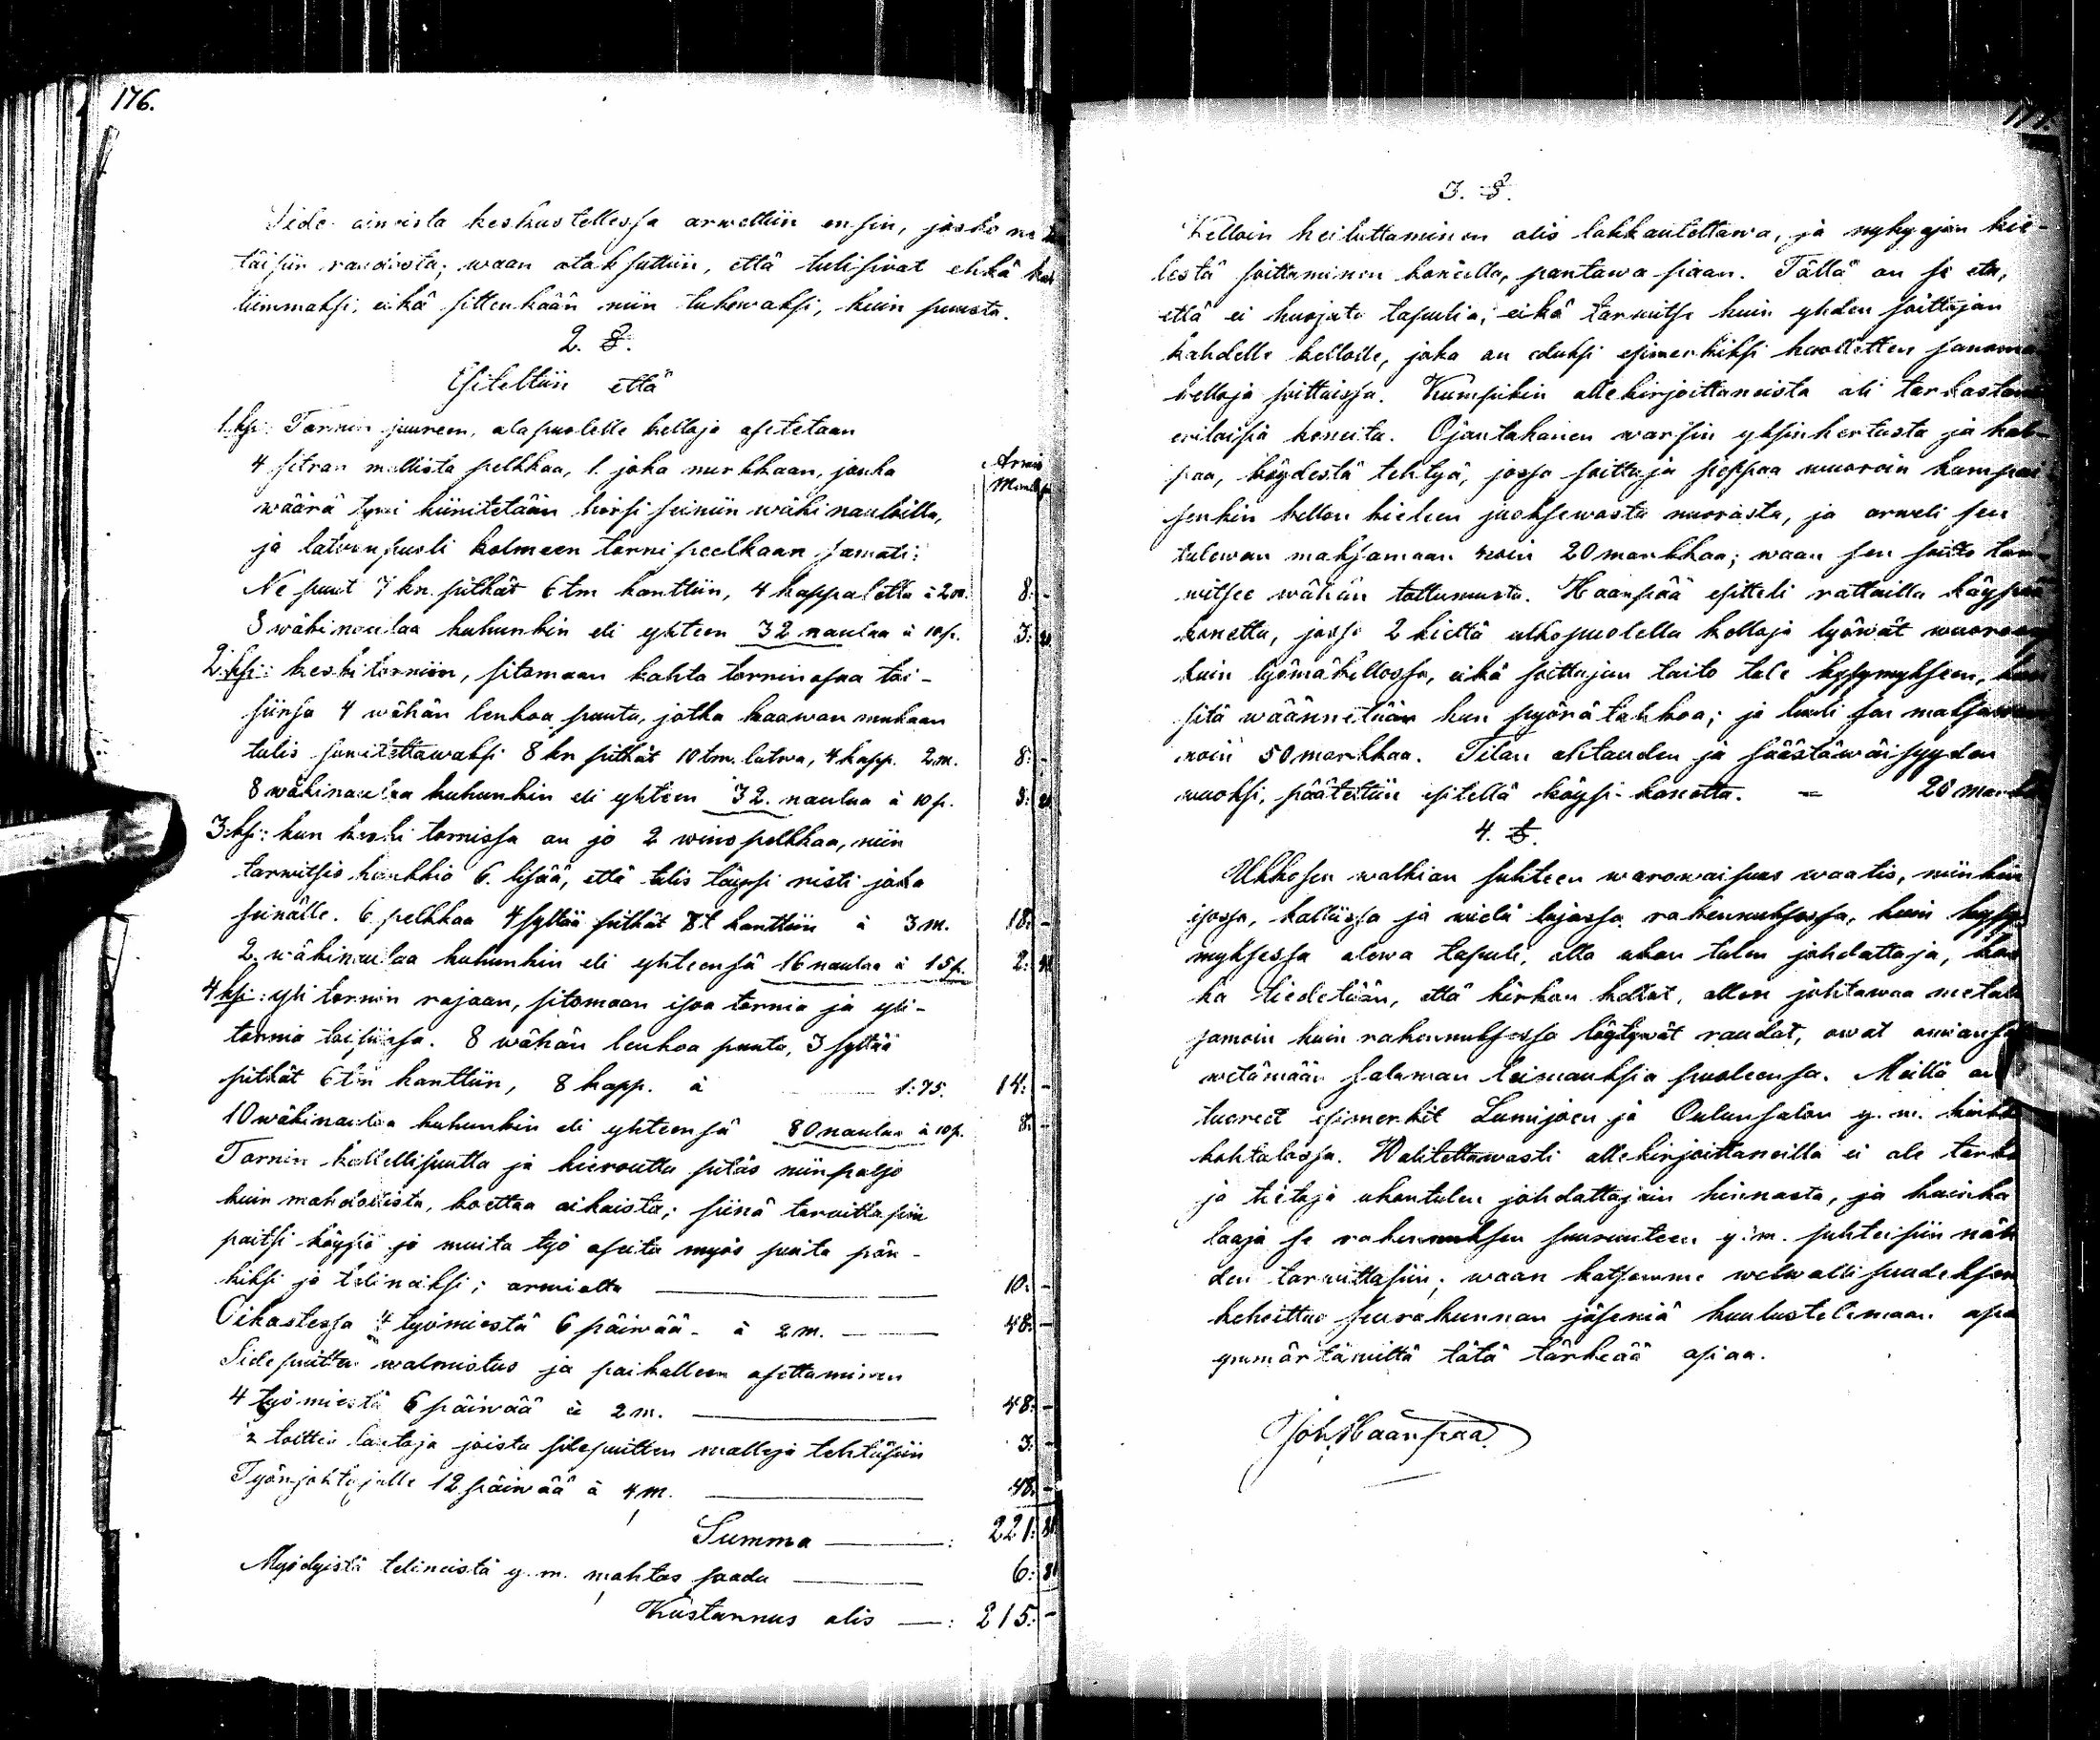 176.
Side-aineista keskustellessa arweltiin ensin, josko ne
täisiin raudoista; waan otaksuttiin, että tulisiwat ehkä
liimmaksi, eikä sittenkään niin tukewaksi, kuin puusta.
2. §.
Esiteltiin että
1.ksi: Tornin juureen, alapuolelle kelloja asetetaan
4 sitran mallista pelkkaa, 1. joka nurkkaan, jonka
wäärä tywi kiinitetään hirsi seiniin wäkinauloilla,
ja latwapuoli kolmeen torni peelkaan samate:
Ne puut 7 kn. pitkät 6 tm kanttiin, 4 kappaletta à 2 m. 8: -
8 wäkinaulaa kuhunkin eli yhteen 32 naulaa à 10 p. 3: 20
2.ksi: keskitorniin, sitomaan kahta tornin osaa toi-
siinsa 4 wähän lenkoa puuta, jotka kaawan mukaan
tulis sowitettawaksi 8 kn pitkät 10 tm. latwa, 4 kapp. 2 m. 8: -
8 wäkinaulaa kuhunkin eli yhteen 32. naulaa à 10 p. 3: 20
3.ksi: kun keski tornissa on jo 2 wino pelkkaa, niin
tarwitsis hankkia 6. lisää, että tulis täyssi risti joka
seinälle. 6 pelkkaa 4 syltää pitkät 8 t kanttiin à 3 m. 18: -
2. wäkinaulaa kuhunkin eli yhteensä 16 naulaa à 15 p. 2: 40
4.ksi: yli tornin rajaan, sitomaan isoa tornia ja yli-
tornia toisiinsa. 8 wähän lenkoa puuta, 3 syltää
pitkät 6 tm kanttiin, 8 kapp. à 1:75. 14: -
10 wäkinaulaa kuhunkin eli yhteensä 80 naulaa à 10 p. 8: -
Tornin kallellisuutta ja kieroutta pitäs niinpaljo
kuin mahdollista, koettaa oikaista; siinä tarwittasiin
paitsi köysiä ja muita työ aseita myös puita pön-
kiksi ja telineiksi; arwiolta 10: -
Oikastessa 4 työmiestä 6 päiwää à 2 m. 48: -
Side puitten walmistus ja paikalleen asettaminen
4 työmiestä 6 päiwää à 2 m. 48: -
2 toltin lautoja joista sidepuitten malleja tehtäisiin 3: -
Työnjohtajalle 12 päiwää à 4 m. 48: -
Summa : 221: 80
Myödyistä telineistä y.m. mahtas saada 6: 80
Kustannus olis : 215: -
3. §.
Kelloin heiluttaminen olis lakkautettawa, ja nykyajan kie-
lestä soittaminen koneilla, pantawa siaan. Tällä on se etu,
että ei huojuta tapulia; eikä tarwitse kuin yhden soittajan
kahdelle kellolle, joka on eduksi esimerkiksi kuolletten sanoma
kelloja soittaissa. Kumpikin allekirjoittaneista oli tarkastanut
erilaisia koneita. Ojantakanen warsin yksinkertasta ja hal-
paa, köydestä tehtyä, jossa soittaja sieppaa wuoroin kumpai
senkin kellon kieleen juoksewasta nuorasta, ja arweli sen
tulewan maksamaan noin 20 markkaa; waan sen soitto tar-
witsee wähän tottumusta. Haanpää esitteli rattailla käypää
konetta, jossa 2 kieltä ulkopuolella kelloja lyöwät wuoroon
kuin lyömäkellossa, eikä soittajan taito tule kysymykseen, kun
sitä wäännetään kun pyörä tahkoa; ja luuli sen maksawan
noin 50 markkaa. Tilan ahtauden ja säästäwäisyyden
wuoksi, päätettiin esitellä köysi-konetta. = 20 markka
4. §.
Ukkosen walkian suhteen warowaisuus waatis, niinkin
isossa, kalliissa ja wielä lujassa rakennuksessa, kuin kysy-
myksessä olewa tapuli, olla ukon tulen johdattaja, kos
ka tiedetään, että kirkon kellot, ollen johtawaa metal
samoin kuin rakennuksessa löytywät raudat, owat omiansa
wetämään salaman leimauksia puoleensa. Meillä on
tuoreet esimerkit Lumijoen ja Oulunsalon y.m. kirkko
kohtalossa. Walitettawasti allekirjoittaneilla ei ole tarkko
ja tietoja ukontulen johdattajain hinnasta, ja kuinka
laaja se rakennuksen suuruuteen y.m. suhteisiin näh
den tarwittasiin; waan katsomme welwollisuudeksem
kehoittaa seurakunnan jäseniä kuulustelemaan asia
ymmärtäwiltä tätä tärkeää asiaa.
Joh. Haanpää